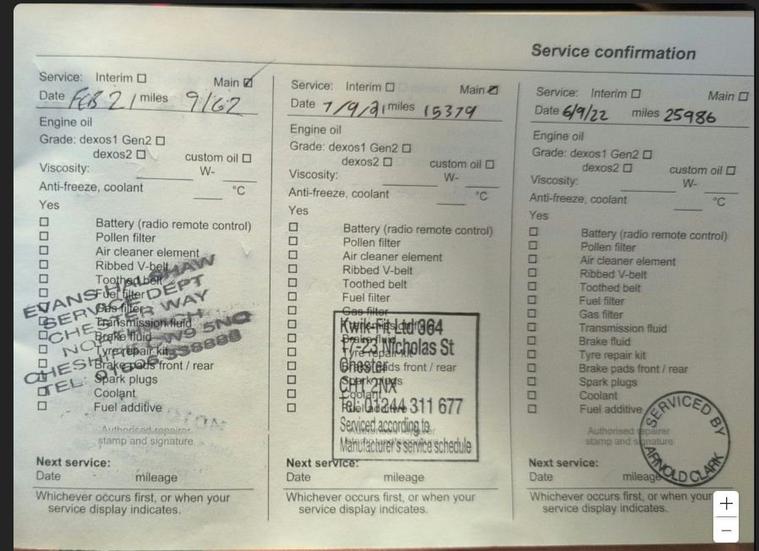 Service confirmation
Service: Interim ☐ Main ☑
Date FEB 21 miles 9162
Engine oil
Grade: dexos1 Gen2 ☐
dexos2 ☐ custom oil ☐
Viscosity: W-
Anti-freeze, coolant °C
Yes
☐ Battery (radio remote control)
☐ Pollen filter
☐ Air cleaner element
☐ Ribbed V-belt
☐ Toothed belt
☐ Fuel filter
☐ Gas filter
☐ Transmission fluid
☐ Brake fluid
☐ Tyre repair kit
☐ Brake pads front / rear
☐ Spark plugs
☐ Coolant
☐ Fuel additive
EVANS HALSHAW
SERVICE DEPT
CHESTER WAY
CHESHIRE
TEL:
Authorised repairer
stamp and signature
Next service:
Date mileage
Whichever occurs first, or when your
service display indicates.
Service: Interim ☐ Main ☑
Date 7/9/21 miles 15379
Engine oil
Grade: dexos1 Gen2 ☐
dexos2 ☐ custom oil ☐
Viscosity: W-
Anti-freeze, coolant °C
Yes
☐ Battery (radio remote control)
☐ Pollen filter
☐ Air cleaner element
☐ Ribbed V-belt
☐ Toothed belt
☐ Fuel filter
☐ Gas filter
☐ Tyre repair kit
☐ Brake pads front / rear
☐ Spark plugs
☐ Coolant
☐ Fuel additive
Kwik-Fit Ltd 364
17-23 Nicholas St
Chester
CH1 2NX
Tel: 01244 311 677
Serviced according to
Manufacturer's service schedule
Next service:
Date mileage
Whichever occurs first, or when your
service display indicates.
Service: Interim ☐ Main ☐
Date 6/9/22 miles 25986
Engine oil
Grade: dexos1 Gen2 ☐
dexos2 ☐ custom oil ☐
Viscosity: W-
Anti-freeze, coolant °C
Yes
☐ Battery (radio remote control)
☐ Pollen filter
☐ Air cleaner element
☐ Ribbed V-belt
☐ Toothed belt
☐ Fuel filter
☐ Gas filter
☐ Transmission fluid
☐ Brake fluid
☐ Tyre repair kit
☐ Brake pads front / rear
☐ Spark plugs
☐ Coolant
☐ Fuel additive
Authorised repairer
stamp and signature
SERVICED BY
ARNOLD CLARK
Next service:
Date mileage
Whichever occurs first, or when your
service display indicates.